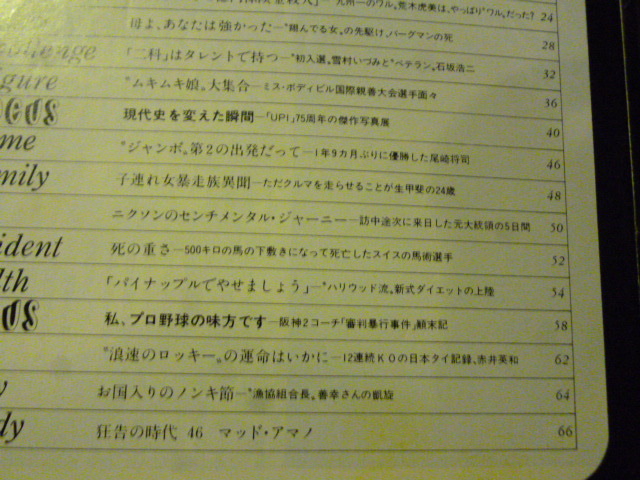 九州一のワル。荒木虎美は、やっぱり"ワル"だった? 24
母よ、あなたは強かった—"翔んでる女"の先駆け、バーグマンの死 28
「二科」はタレントで持つ—"初入選"雪村いづみと"ベテラン"石坂浩二 32
"ムキムキ娘"大集合—ミス・ボディビル国際親善大会選手面々 36
現代史を変えた瞬間—「UPI」75周年の傑作写真展 40
me "ジャンボ"第2の出発だって—1年9カ月ぶりに優勝した尾崎将司 46
mily 子連れ女暴走族異聞—ただクルマを走らせることが生甲斐の24歳 48
ニクソンのセンチメンタル・ジャーニー—訪中途次に来日した元大統領の5日間 50
ident 死の重さ—500キロの馬の下敷きになって死亡したスイスの馬術選手 52
lth 「パイナップルでやせましょう」—"ハリウッド流"新式ダイエットの上陸 54
私、プロ野球の味方です—阪神2コーチ「審判暴行事件」顛末記 58
"浪速のロッキー"の運命はいかに—12連続KOの日本タイ記録、赤井英和 62
y お国入りのノンキ節—"漁協組合長"善幸さんの凱旋 64
dy 狂告の時代 46 マッド・アマノ 66